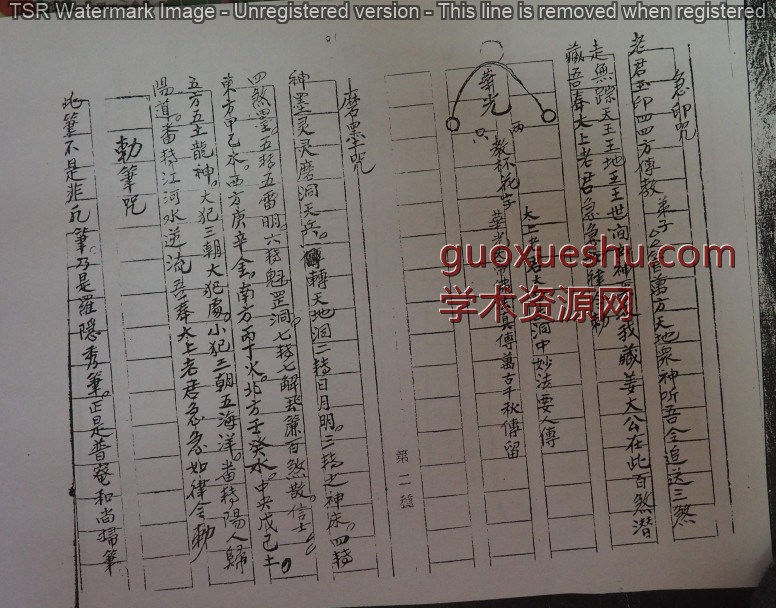 TSR Watermark Image - Unregistered version - This line is removed when registered
急印咒
老君玉印四四方傳教 弟子 萬方天地眾神听吾令追送三煞
走無踪天王王地王王世间 神 我藏姜太公在此百煞潜
藏吾奉太上老君急急 律 勅
華光
兩
教杯花字
太上老君 洞中妙法要人傳
華光 真傳萬古千秋傳留
第二種
磨墨咒
神墨灵灵磨洞天兵。 轉天地洞二轉日月明。三轉 神 。四轉
四煞墨。五轉五雷明。六轉魁罡洞。七轉七解 簾百煞散。信士
東方甲乙水。西方庚辛金。南方丙丁火。北方壬癸水。中央戊己土
五方五土龍神。大犯三朝大犯處。小犯三朝五海洋。畨轉陽人歸
陽道。畨轉江河水逆流吾奉太上老君急急如律令勅
勅筆咒
此筆不是非凢筆。乃是羅隠秀筆。正是普奄和尚掃筆
guoxueshu.com
学术资源网